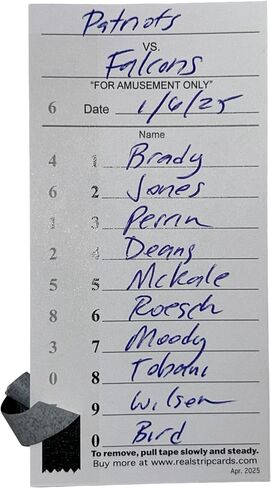 Patriots
VS.
Falcons
"FOR AMUSEMENT ONLY"
6 Date 1/6/25
Name
4 1 Brady
6 2 Jones
1 3 Perrin
2 4 Deans
5 5 McKale
8 6 Roesch
3 7 Moody
0 8 Tobani
9 Wilson
0 Bird
To remove, pull tape slowly and steady.
Buy more at www.realstripcards.com Apr. 2025